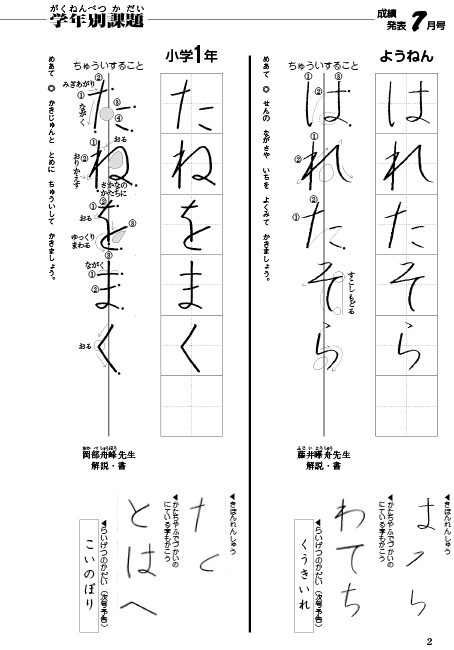 がくねんべつ か だい
学年別課題
成績発表7月号
ようねん
はれたそら
ちゅういすること
① ② ③
はれたそら
①
②
②
①
すこしもどる
めあて ◎ せんの ながさや いちを よくみて かきましょう。
ふじ い とうしゅう
藤井峰舟先生
解説・書
◀きほんれんしゅう
◀かたちやふでづかいの
にている字もかこう
わてち
◀らいげつのかだい(次号予告)
くうきいれ
小学1年
たねをまく
ちゅういすること
みぎあがり
① ②
ながく
③
④
たねをまく
おる
①
②
おりかえす
さかなの
かたちに
① ②
おる
③
ゆっくり
まわる
③
ながく
①
②
おる
めあて ◎ かきじゅんと とめに ちゅういして かきましょう。
おか べ しゅうほう
岡部舟峰先生
解説・書
◀きほんれんしゅう
◀かたちやふでづかいの
にている字もかこう
とはへ
◀らいげつのかだい(次号予告)
こいのぼり
2